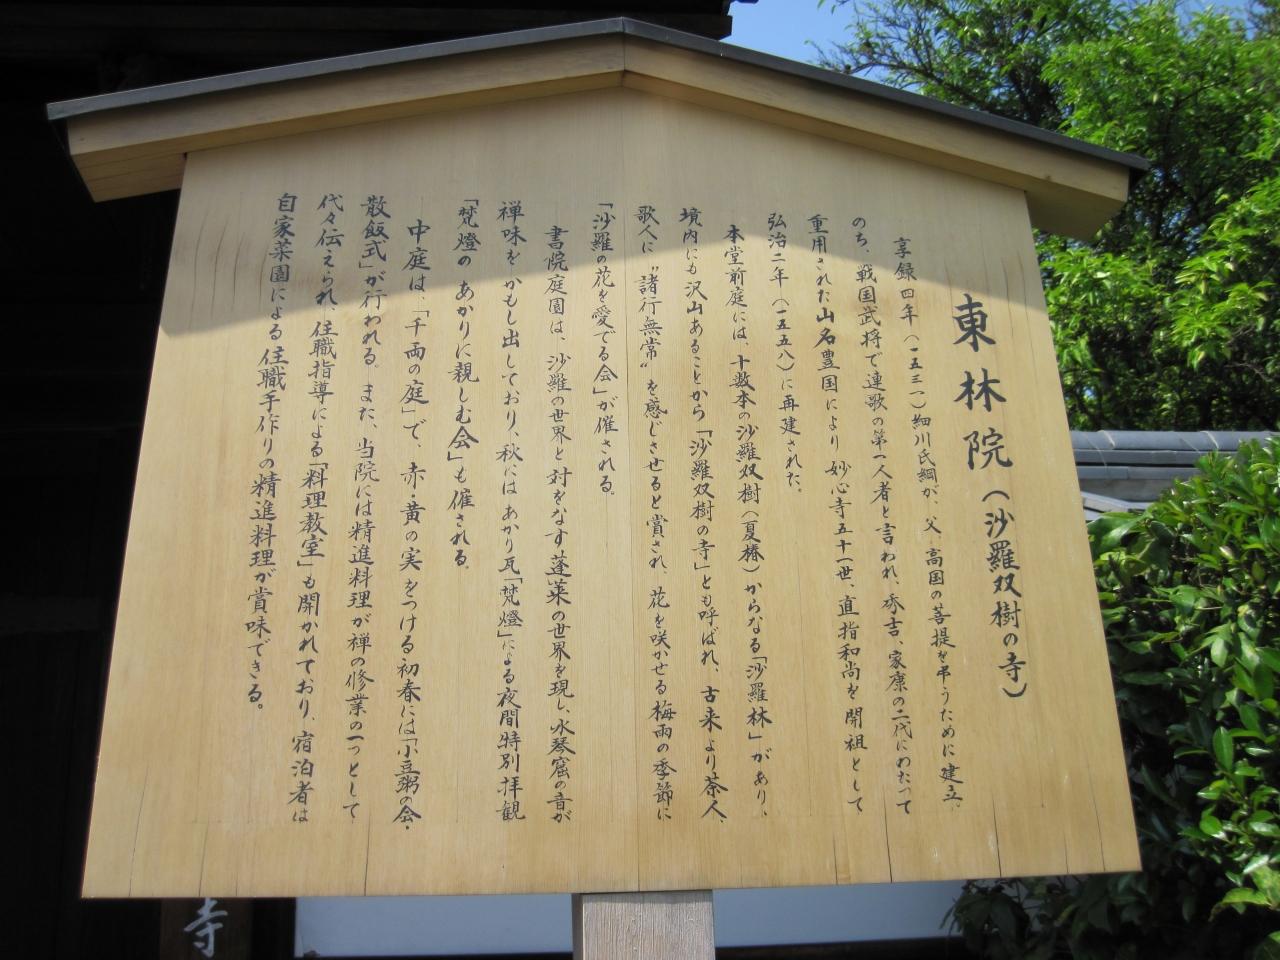 東林院（沙羅双樹の寺）
享録四年（一五三一）細川氏綱が、父、高国の菩提を弔うために建立。
のち、戦国武将で連歌の第一人者と言われ、秀吉、家康の二代にわたって
重用された山名豊国により妙心寺五十一世、直指和尚を開祖として
弘治二年（一五五八）に再建された。
本堂前庭には、十数本の沙羅双樹（夏椿）からなる「沙羅林」があり、
境内にも沢山あることから「沙羅双樹の寺」とも呼ばれ、古来より茶人、
歌人に〝諸行無常〟を感じさせると賞され、花を咲かせる梅雨の季節に
「沙羅の花を愛でる会」が催される。
書院庭園は、沙羅の世界と対をなす蓬莱の世界を現し、水琴窟の音が
禅味をかもし出しており、秋にはあかり瓦「梵燈」による夜間特別拝観
「梵燈のあかりに親しむ会」も催される。
中庭は、「千両の庭」で、赤・黄の実をつける初春には「小豆粥の会・
散飯式」が行われる。また、当院には精進料理が禅の修業の一つとして
代々伝えられ、住職指導による「料理教室」も開かれており、宿泊者は
自家菜園による住職手作りの精進料理が賞味できる。
寺